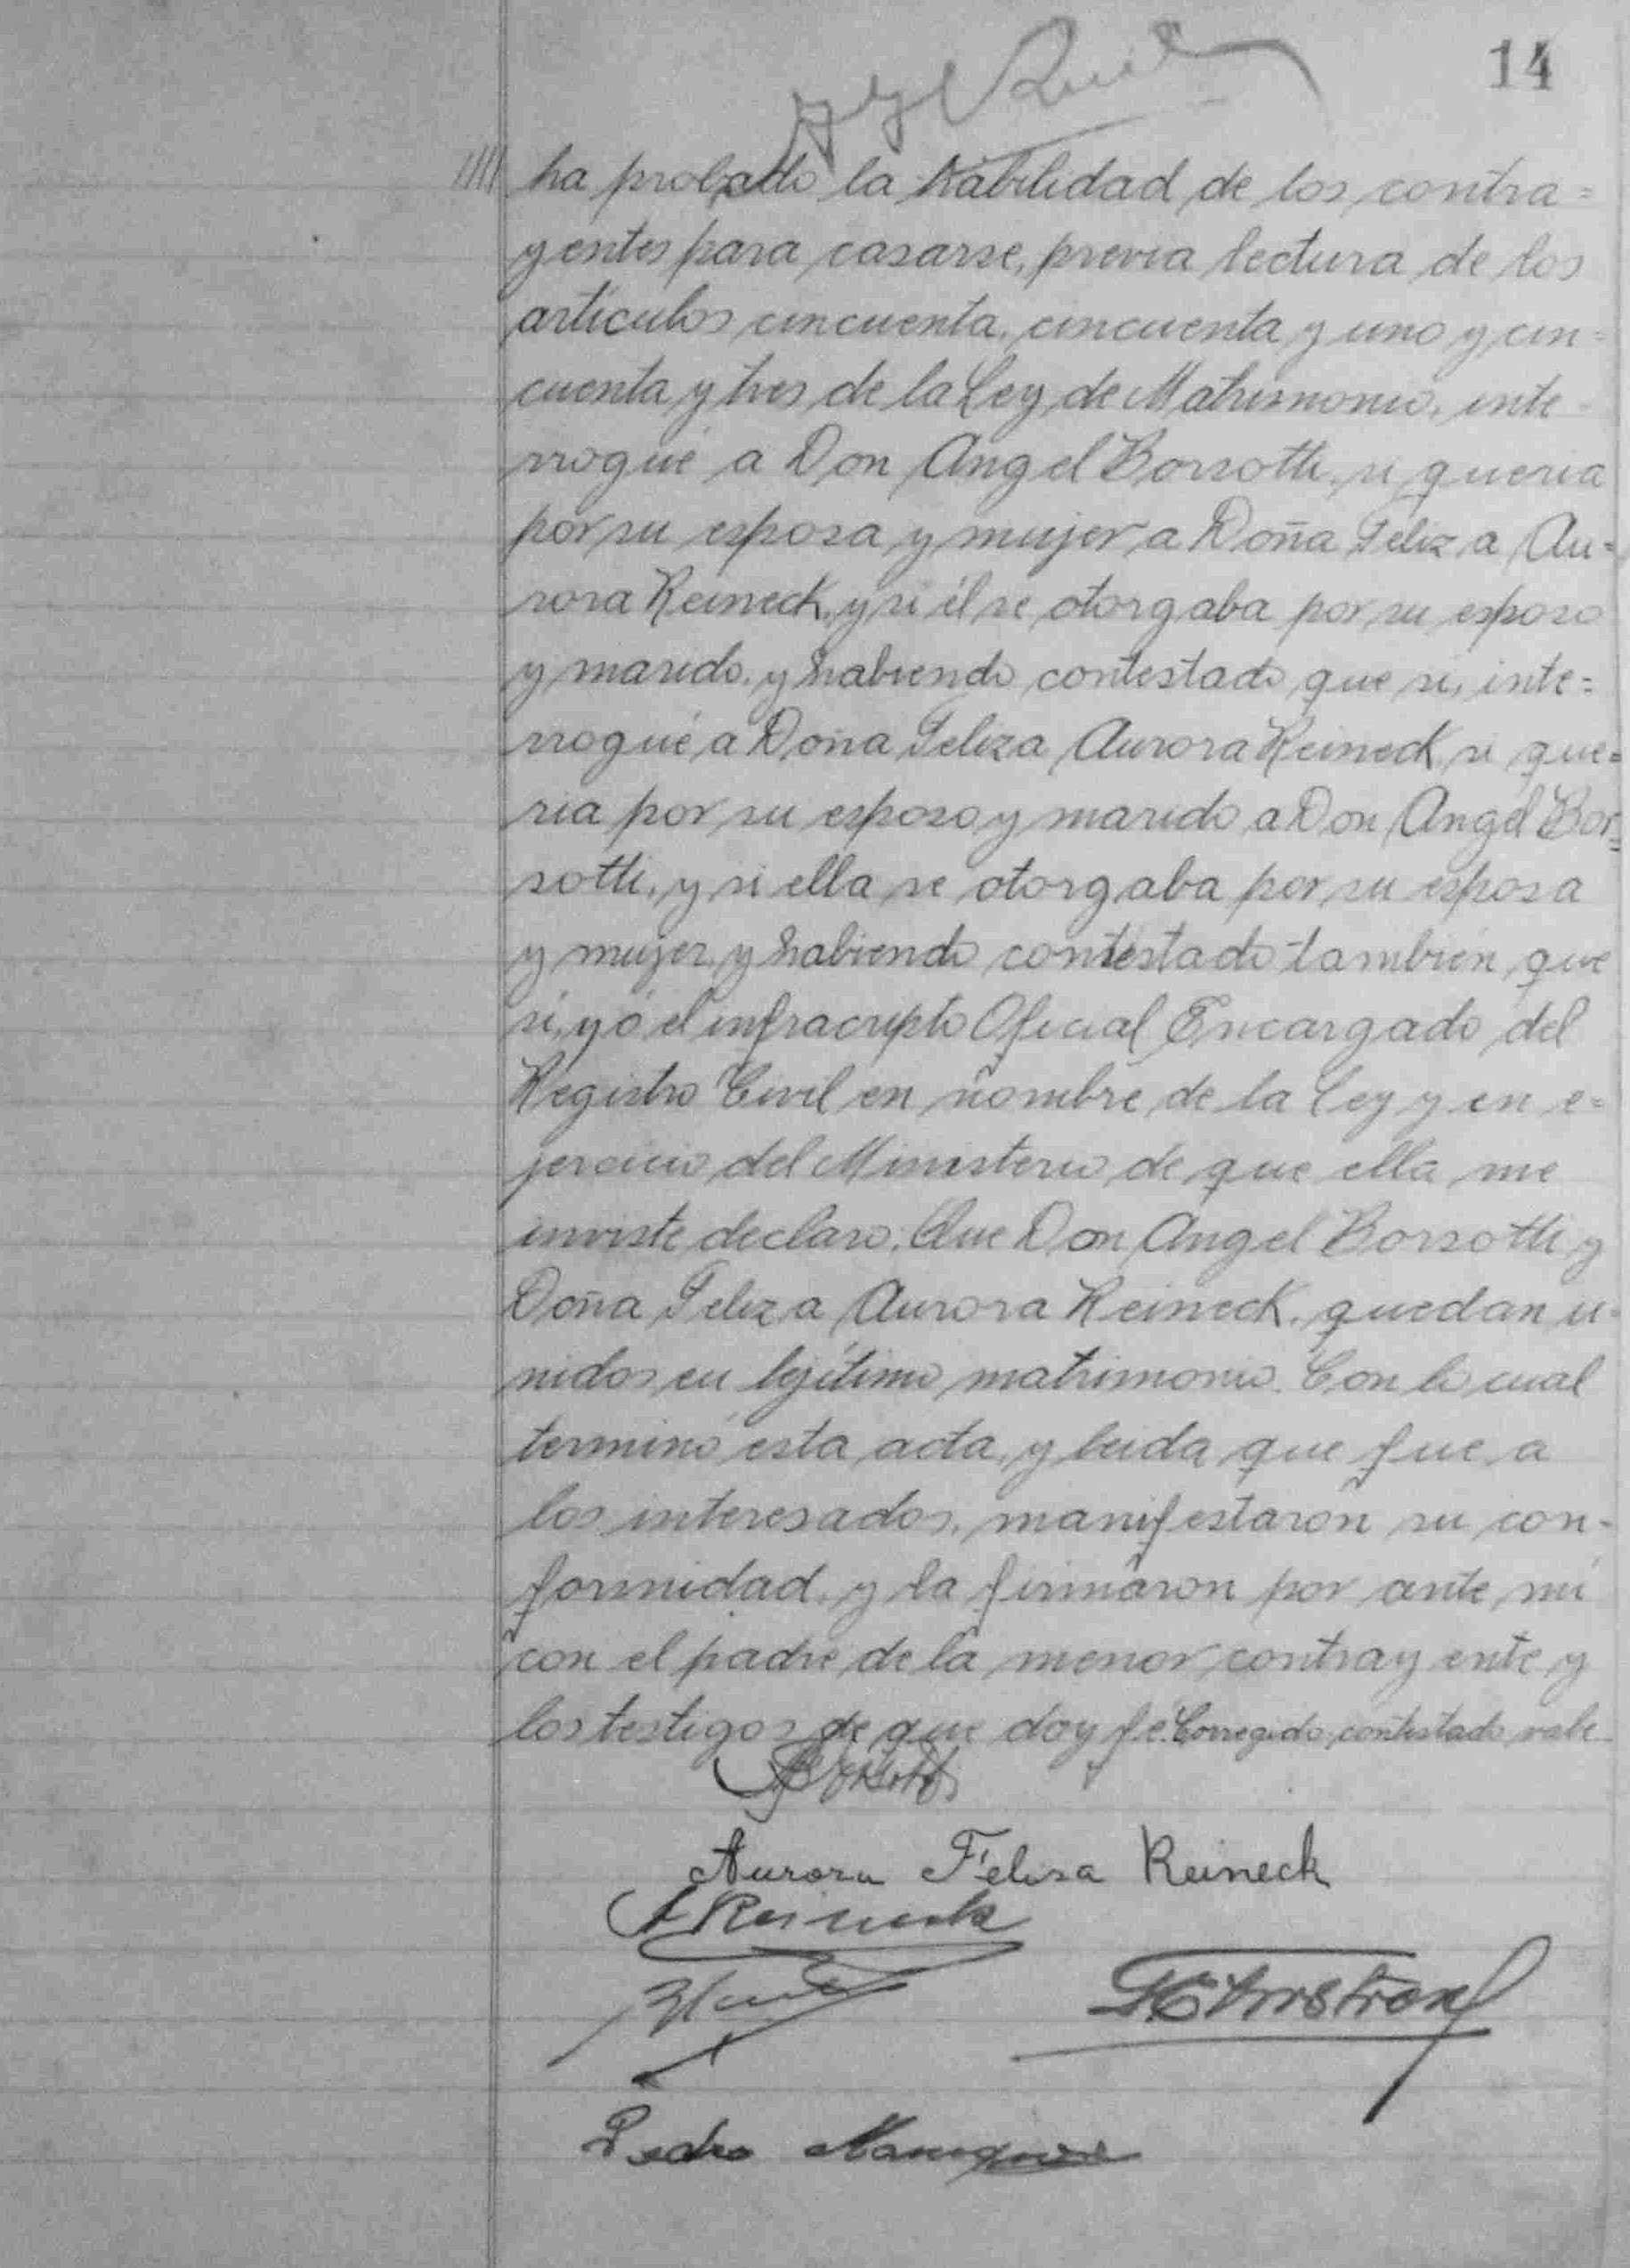 14
//// ha probado la habilidad de los contra=
yentes para casarse, previa lectura de los
artículos cincuenta, cincuenta y uno y cin=
cuenta y tres de la Ley de Matrimonio, inte-
rrogué a Don Angel Borsotti, si queria
por su esposa y mujer a Doña Feliza Au=
rora Reineck, y si él se otorgaba por su esposo
y marido, y habiendo contestado que si, inte=
rrogué a Doña Feliza Aurora Reineck si que=
ria por su esposo y marido a Don Angel Bor=
sotti, y si ella se otorgaba por su esposa
y mujer, y habiendo contestado también que
si, yó el infracripto Oficial Encargado del
Registro Civil en nombre de la Ley y en e=
jercicio del Ministerio de que ella me
inviste declaro: Que Don Angel Borsotti y
Doña Feliza Aurora Reineck, quedan u-
nidos en lejítimo matrimonio. Con lo cual
terminó esta acta, y leida que fue a
los interesados, manifestaron su con-
formidad, y la firmaron por ante mi
con el padre de la menor contrayente y
los testigos de que doy fé. Corregido: contestado, vale
Aurora Félisa Reineck
A Reineck
Pedro